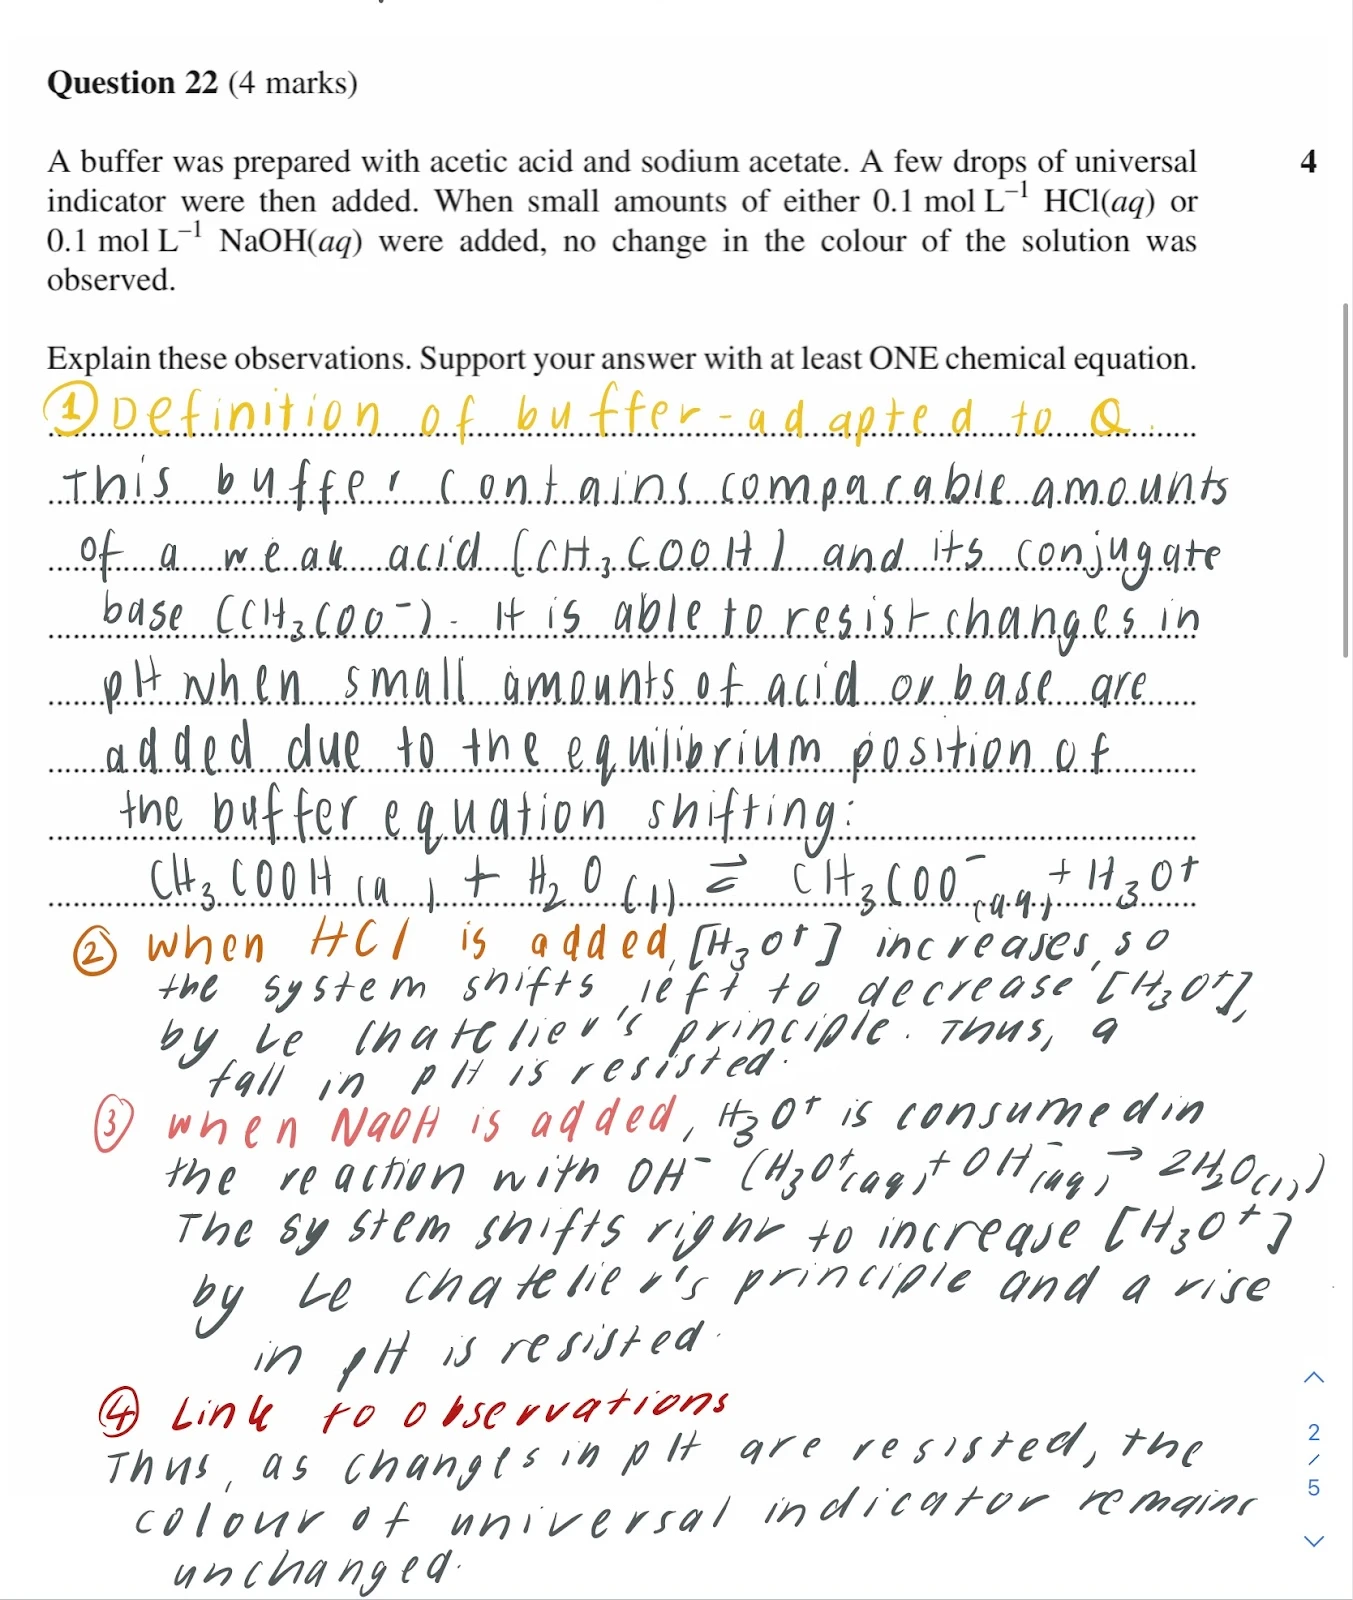 Question 22 (4 marks)
A buffer was prepared with acetic acid and sodium acetate. A few drops of universal 4
indicator were then added. When small amounts of either 0.1 mol L⁻¹ HCl(aq) or
0.1 mol L⁻¹ NaOH(aq) were added, no change in the colour of the solution was
observed.
Explain these observations. Support your answer with at least ONE chemical equation.
① Definition of buffer - adapted to Q.
This buffer contains comparable amounts
of a weak acid (CH₃COOH) and its conjugate
base (CH₃COO⁻). It is able to resist changes in
pH when small amounts of acid or base are
added due to the equilibrium position of
the buffer equation shifting:
CH₃COOH (a ) + H₂O (l) ⇌ CH₃COO⁻ (aq) + H₃O⁺
② When HCl is added, [H₃O⁺] increases, so
the system shifts left to decrease [H₃O⁺],
by Le Chatelier's principle. Thus, a
fall in pH is resisted.
③ When NaOH is added, H₃O⁺ is consumed in
the reaction with OH⁻ (H₃O⁺(aq) + OH⁻(aq) → 2H₂O(l))
The system shifts right to increase [H₃O⁺]
by Le Chatelier's principle and a rise
in pH is resisted.
④ Link to observations
Thus, as changes in pH are resisted, the
colour of universal indicator remains
unchanged.
2
/
5